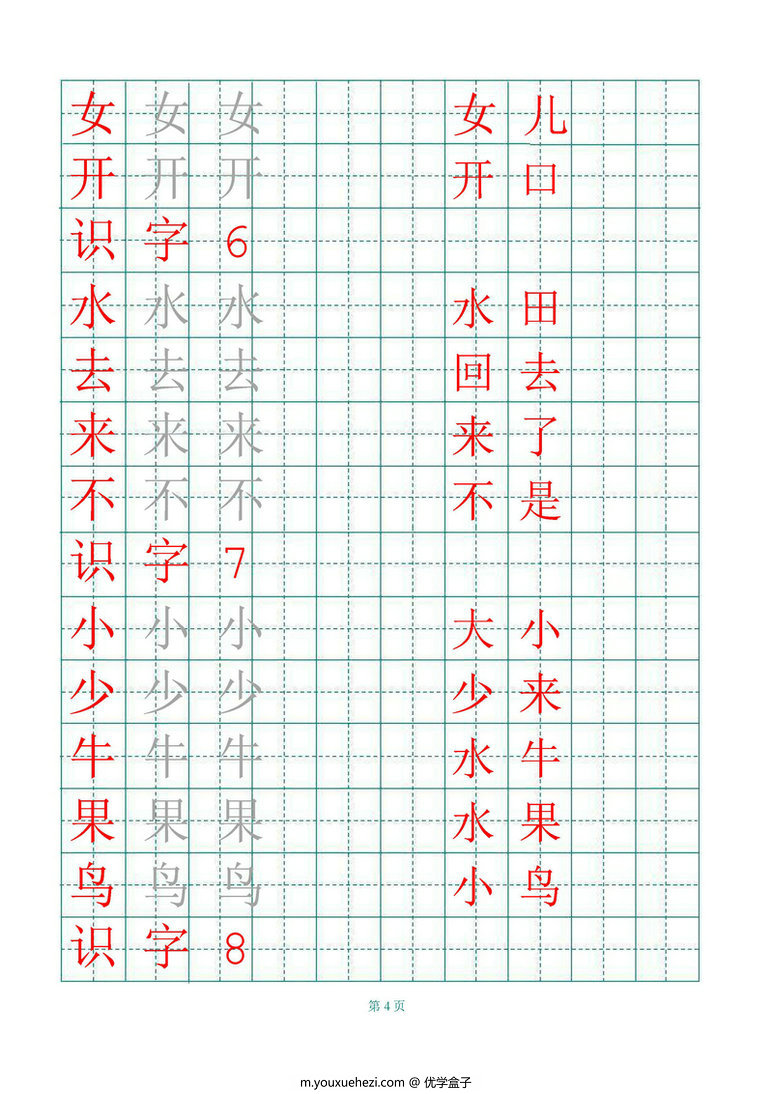 女 女 女 女 儿
开 开 开 开 口
识 字 6
水 水 水 水 田
去 去 去 回 去
来 来 来 来 了
不 不 不 不 是
识 字 7
小 小 小 大 小
少 少 少 少 来
牛 牛 牛 水 牛
果 果 果 水 果
鸟 鸟 鸟 小 鸟
识 字 8
第 4 页
m.youxuehezi.com @ 优学盒子